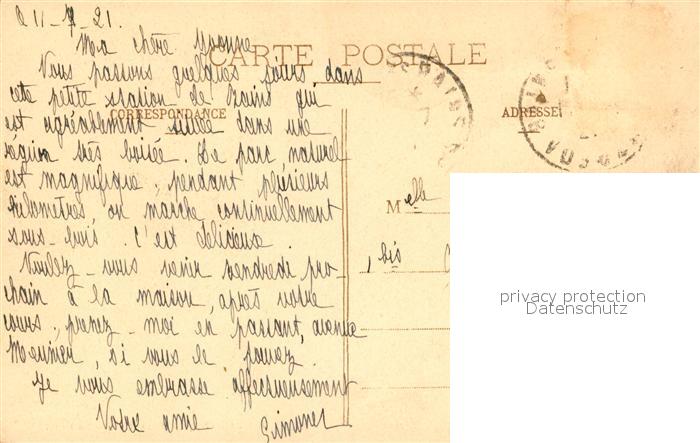 11 - - 21.
Ma chère Yvonne
CARTE POSTALE
Nous passons quelques jours dans
cette petite station de Bains qui
CORRESPONDANCE
ADRESSE
est agréablement située dans une
région très boisée. Le parc naturel
est magnifique, pendant plusieurs
kilomètres, on marche continuellement
sous-bois. C'est délicieux.
Voulez-vous venir vendredi pro-
chain à la maison, après votre
cours, prenez-moi en passant, avenue
Meunier, si vous le pouvez.
Je vous embrasse affectueusement
Votre amie
Simone
Melle
bis
privacy protection
Datenschutz